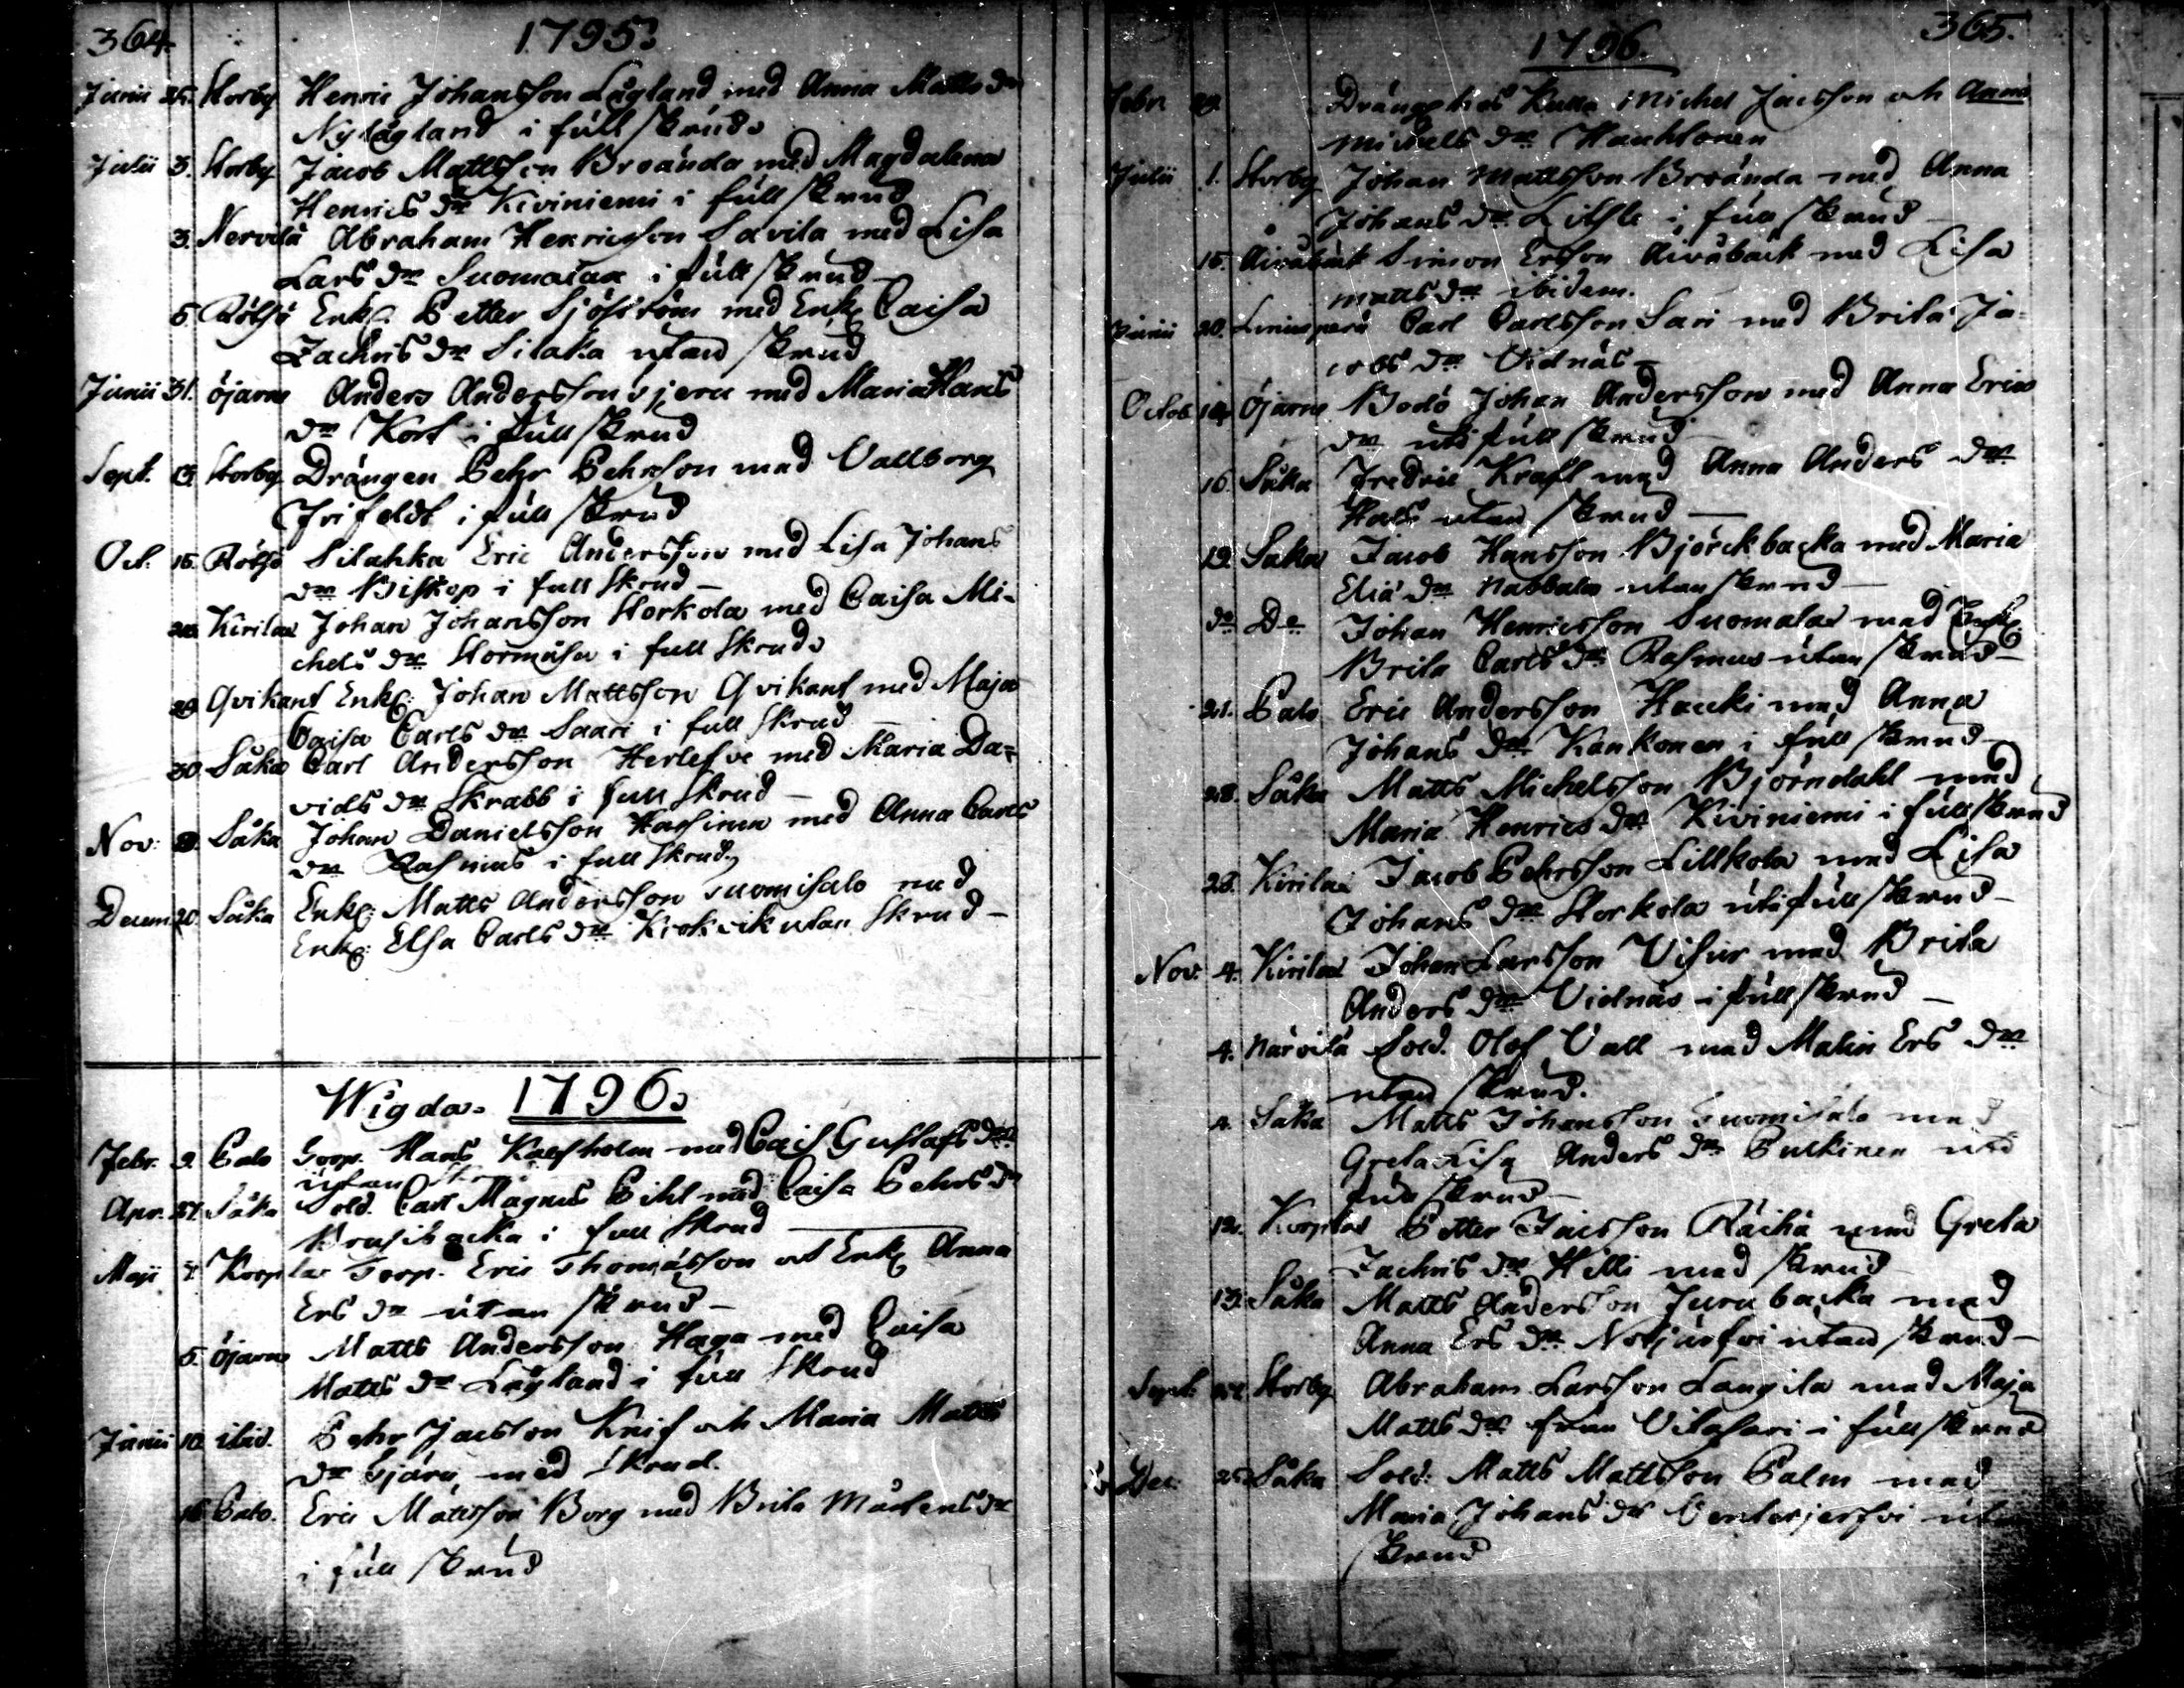 364.
1795.
Junii 25. Storby Henric Johansson Lågland med Anna Matts dr
Nylågland i full skrud
Julii 3. Storby Jacob Mattsson Broända med Magdalena
Henrics dr Kiviniemi i full skrud
3. Nervilä Abraham Henricsson Savila med Lisa
Lars dr Suomalax i full skrud
5. Rölsjö Enkl. Petter Sjöström med Enk Caisa
Zachris dr Silaka utan skrud
Junii 31. Öjarne Anders Andersson Öjeru med Maria Hans
dr Kort i full skrud
Sept. Storby Drängen Pehr Pehrsson med Vallborg
Frifeldt i full skrud
Oct. 15. Rölsö Silahka Eric Andersson med Lisa Johans
dr Biskop i full skrud
Kirilax Johan Johansson Storkola med Caisa Mi-
chels dr Stormåsa i full skrud
29 Qvikant Enkl: Johan Mattsson Qvikant med Maja
Caisa Carls dr Saari i full skrud
30. Såka Carl Andersson Herlefve med Maria Da=
vids dr Skrabb i full skrud
Nov: Såka Johan Danielsson Hassinen med Anna Carls
dr Rasmus i full skrud
Decem 20. Såka Enkl: Matts Andersson Suomisalo med
Enk: Elsa Carls dr Krokvik utan skrud
Wigda. 1796.
Febr. 9. Palo Sorp. Hans Kassholm med Cajs Gustafs dr
utan
Apr. 27. Såka Sold. Carl Magnus Pihl med Caisa Pehrs dr
Brusibacka i full skrud
Maji Korplax Torp. Eric Thomasson och Enk Anna
Ers dr utan skrud
5. Öjarne Matts Andersson Haga med Caisa
Matts dr Lågland i full skrud
Junii 10. ibid. Pehr Jacsson Knif och Maria Matts
dr Öjäru med skrud.
16 Palo. Eric Mattsson Borg med Brita Mårtens dr
i full skrud
365.
1796.
Febr Michel Jacsson och Anna
Michels dr Hauhtonen
Julii 1. Storby Johan Mattsson Broända med Anna
Johans dr Lillsle i full skrud
15. Åiväbäck Simon Ersson Åiväbäck med Lisa
Matts dr ibidem.
Junii 20. Linusperä Carl Carlsson Sari med Brita Ja-
cobs dr Vidnäs
Octob 14 Öjarne Bodö Johan Andersson med Anna Erics
dr uti full skrud
16. Såka Fredric Kraft med Anna Anders dr
Hals utan skrud
19. Såka Jacob Hansson Björckbacka med Maria
Eliä dr Nabbala utan skrud
do Do Johan Henricsson Suomalax med Enk
Brita Carls dr Rasmus utan skrud
21. Palo Eric Andersson Hauki med Anna
Johans dr Kankonen i full skrud
28. Såka Matts Michelsson Björndahl med
Maria Henrics dr Kiviniemi i full skrud
28. Kirilax Jacob Pehrsson Lillkola med Lisa
Johans dr Storkola uti full skrud
Nov. 4. Kirilax Johan Larsson Visur med Brita
Anders dr Vidnäs i full skrud
4. Närvilä Sold. Olof Vall med Malin Ers dr
utan skrud.
Såka Matts Johansson Suomisalo med
Greta Lisa Anders dr Pulkinen uti
full skrud
12. Korplax Petter Jacsson Räihä med Greta
Zachris dr Hilli med skrud
13. Såka Matts Andersson Jurubacka med
Anna Ers dr Notjärfvi utan skrud
Sept. Storby Abraham Larsson Langila med Maja
Matts dr från Vitasari i full skrud
Dec. 25. Såka Sold. Matts Mattsson Palm med
Maria Johans dr Venterjerfvi utan
skrud